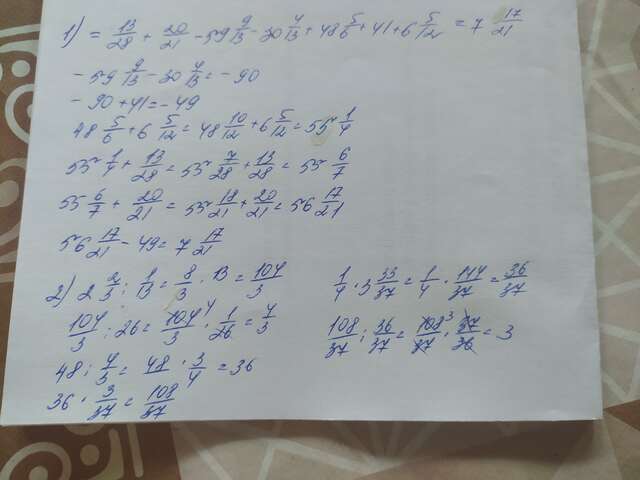 1) = 13/28 + 20/21 - 59 9/13 - 30 4/13 + 48 5/6 + 41 + 6 5/12 = 7 17/21
- 59 9/13 - 30 4/13 = - 90
- 90 + 41 = - 49
48 5/6 + 6 5/12 = 48 10/12 + 6 5/12 = 55 1/4
55 1/4 + 13/28 = 55 7/28 + 13/28 = 55 6/7
55 6/7 + 20/21 = 55 18/21 + 20/21 = 56 17/21
56 17/21 - 49 = 7 17/21
2) 2 2/3 : 1/13 = 8/3 · 13 = 104/3
104/3 : 26 = 104 4/3 · 1/26 = 4/3
48 : 4/3 = 48 · 3/4 = 36
36 · 3/37 = 108/37
1/4 · 3 33/37 = 1/4 · 144/37 = 36/37
108/37 : 36/37 = 108 3/37 · 37/36 = 3